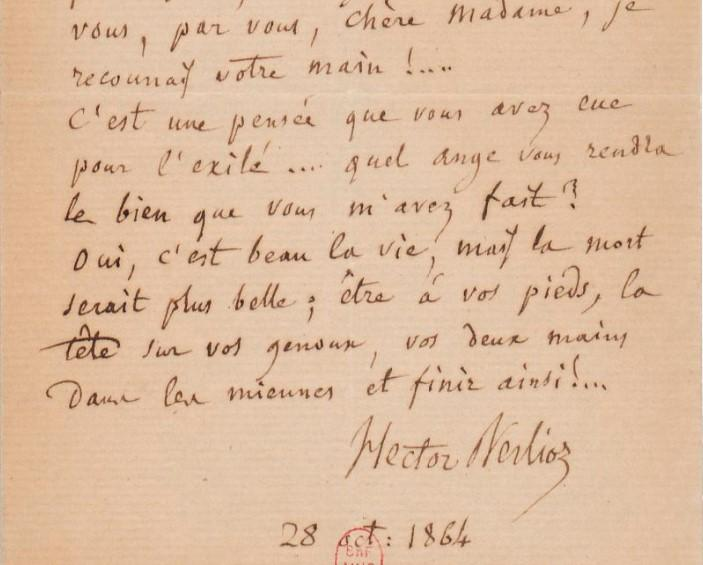 vous, par vous, chère madame, je
reconnais votre main !....
C'est une pensée que vous avez eue
pour l'exilé .... quel ange vous rendra
le bien que vous m'avez fait ?
Oui, c'est beau la vie, mais la mort
serait plus belle ; être à vos pieds, la
tête sur vos genoux, vos deux mains
Dans les miennes et finir ainsi !...
Hector Berlioz
28 oct : 1864
BNF
MUS